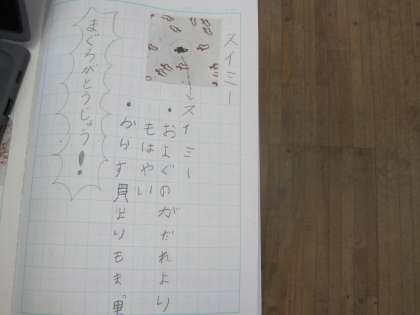 スイミー
スイミー
・およぐのがだれより
もはやい
・からす貝よりもま黒
まぐろがとうじょう!